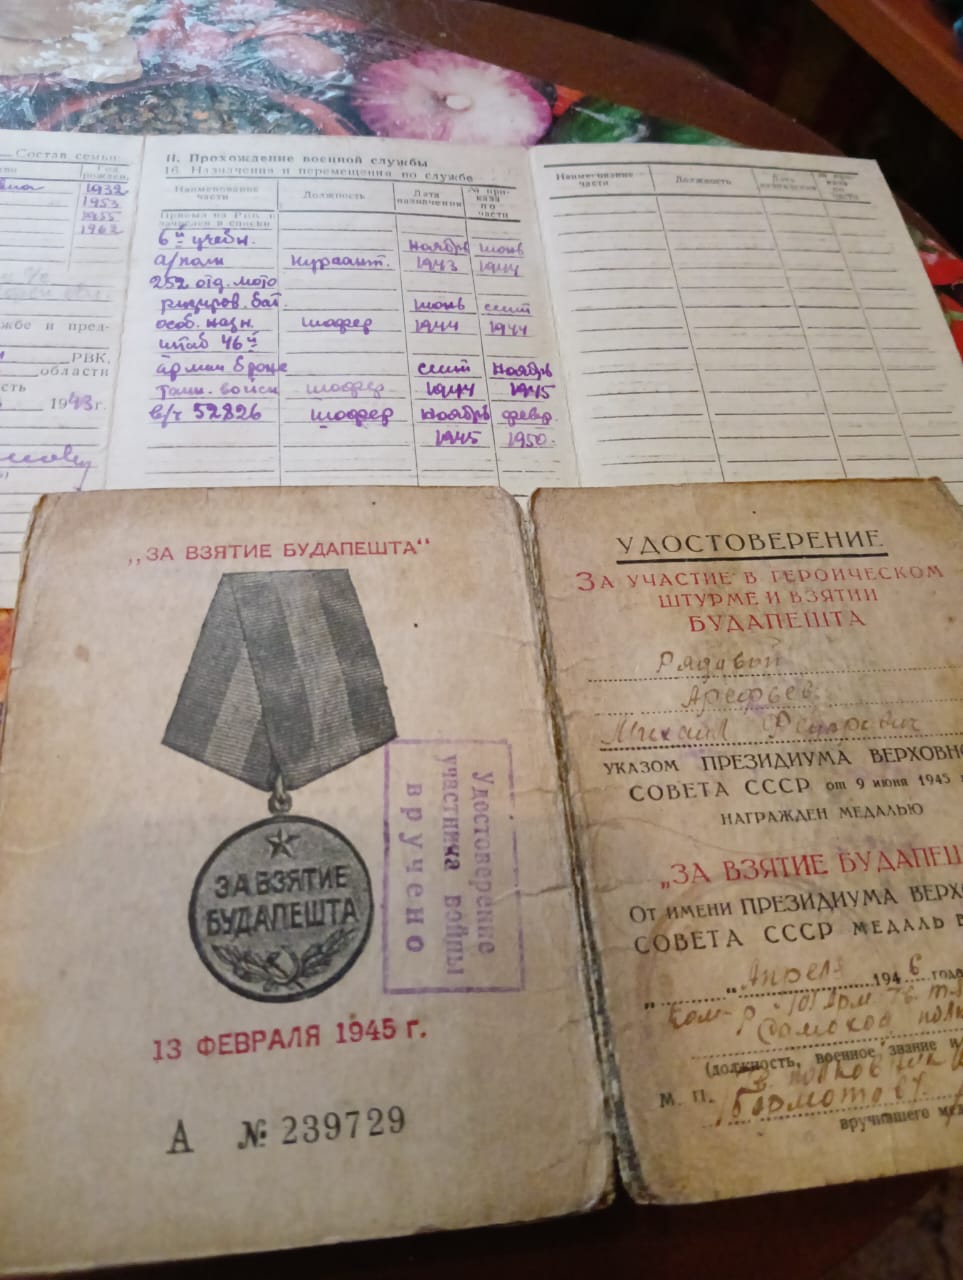 Состав семьи
Год
рожден.
1932
1953
1955
1962
жбе и пред-
РВК,
области
сть
1943 г.
II. Прохождение военной службы
16. Назначения и перемещения по службе
Наименование части
Должность
Дата назначения
№ приказа по части
Приема на РВК и
зачислен в списки
6й учебн. ноябрь июнь
а/полк курсант. 1943 1944
252 отд. мото
резерв. бат. июнь сент
особ. назн. шофер 1944 1944
штаб 46й
армии броне сент ноябрь
танк. войск шофер 1944 1945
в/ч 52826 шофер ноябрь февр.
1945 1950.
Наименование части
Должность
Дата назначения
№ приказа по части
„ЗА ВЗЯТИЕ БУДАПЕШТА“
ЗА ВЗЯТИЕ
БУДАПЕШТА
Удостоверение
участника войны
вручено
13 ФЕВРАЛЯ 1945 г.
А № 239729
УДОСТОВЕРЕНИЕ
ЗА УЧАСТИЕ В ГЕРОИЧЕСКОМ
ШТУРМЕ И ВЗЯТИИ
БУДАПЕШТА
Рядовой
Арефьев
Михаил
УКАЗОМ ПРЕЗИДИУМА ВЕРХОВНО
СОВЕТА СССР от 9 июня 1945
НАГРАЖДЕН МЕДАЛЬЮ
„ЗА ВЗЯТИЕ БУДАПЕШ
ОТ ИМЕНИ ПРЕЗИДИУМА ВЕРХО
СОВЕТА СССР МЕДАЛЬ В
„ “ Апреля 1946 года
Ком-р
Самоход полк
(должность, воинское звание и
М. П.
вручившего мед